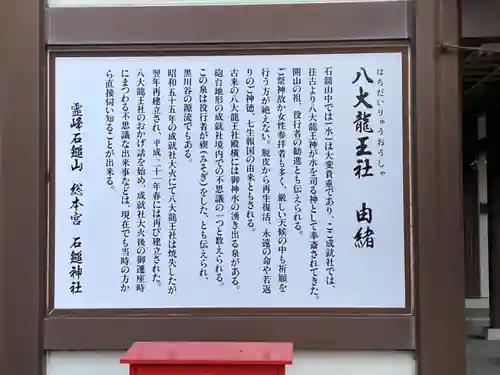 はちだいりゅうおうしゃ
八大龍王社 由緒
石鎚山中では「水」は大変貴重であり、ここ成就社では、
往古より八大龍王神が水を司る神として奉斎されてきた。
開山の祖、役行者の勧進とも伝えられる。
ご祭神故か女性参拝者も多く、厳しい天候の中も祈願を
行う方が絶えない。脱皮から再生復活、永遠の命や若返
りのご神徳、七生報国の由来ともされる。
古来の八大龍王社殿横には御神水の湧き出る泉がある。
砲台地形の成就社境内での不思議の一つと数えられる。
この泉は役行者が禊(みそぎ)をした、とも伝えられ、
黒川谷の源流でもある。
昭和五十五年の成就社大火にて八大龍王社は焼失したが
翌年再建立され、平成二十一年春には再び建立された。
八大龍王社のおかげ話を始め、成就社大火後の御遷座時
にまつわる不思議な出来事などは、現在でも当時の方か
ら直接伺い知ることが出来る。
霊峰石鎚山 総本宮 石鎚神社